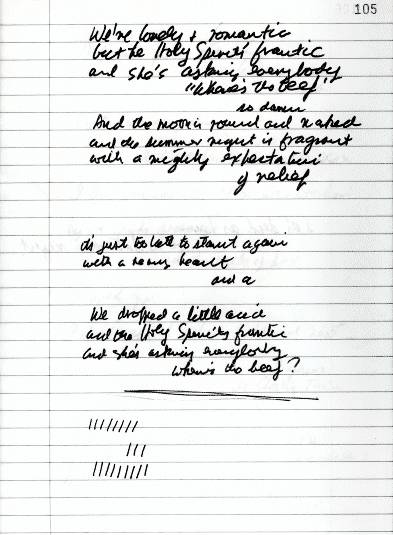 105
We're lonely & romantic
but the Holy Spirit's frantic
and she's asking everybody
"Where's the beef"
so damn
And the moon is round and naked
and the summer night is fragrant
with a mighty expectation
of relief
it's just too late to start again
with a heavy heart
and a
We dropped a little acid
and the Holy Spirit's frantic
and she's asking everybody
where's the beef?
////////
///
/////////